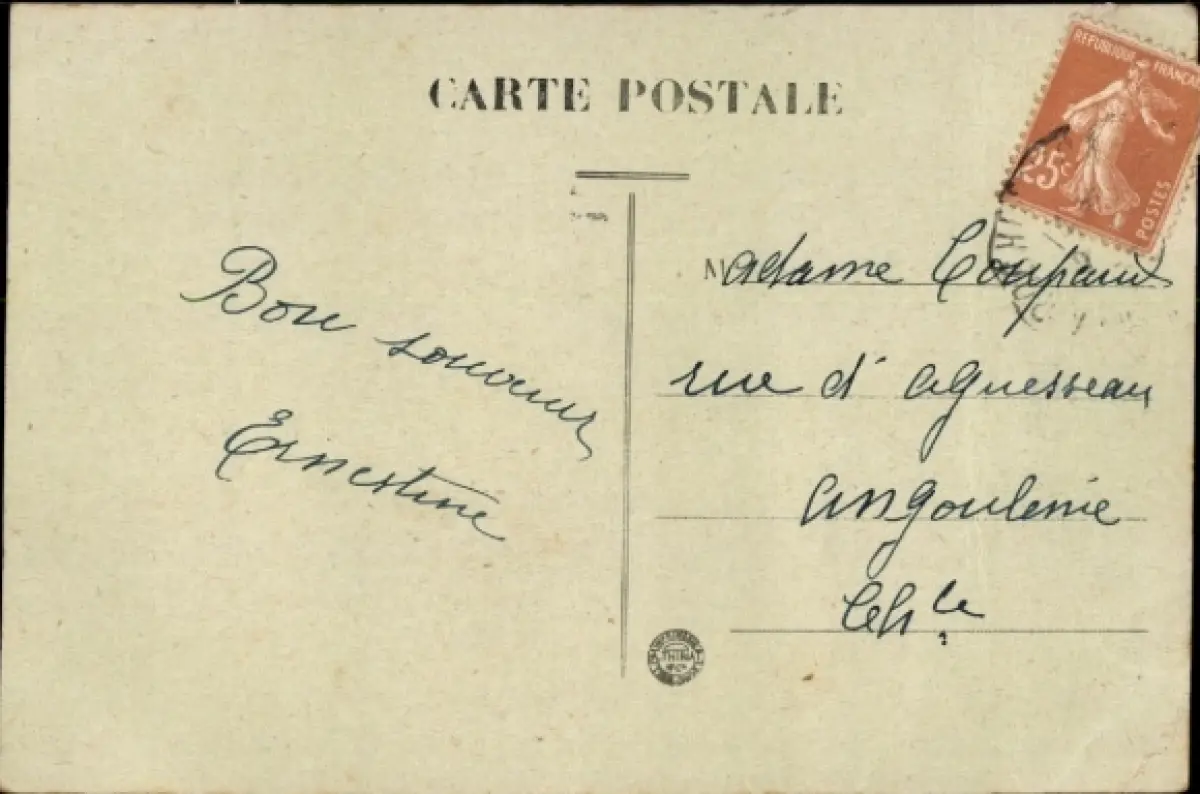 CARTE POSTALE
REPUBLIQUE FRANÇAISE
25c
POSTES
Bon souvenir
Ernestine
Madame
rue d'aguesseau
angoulême
Ch le